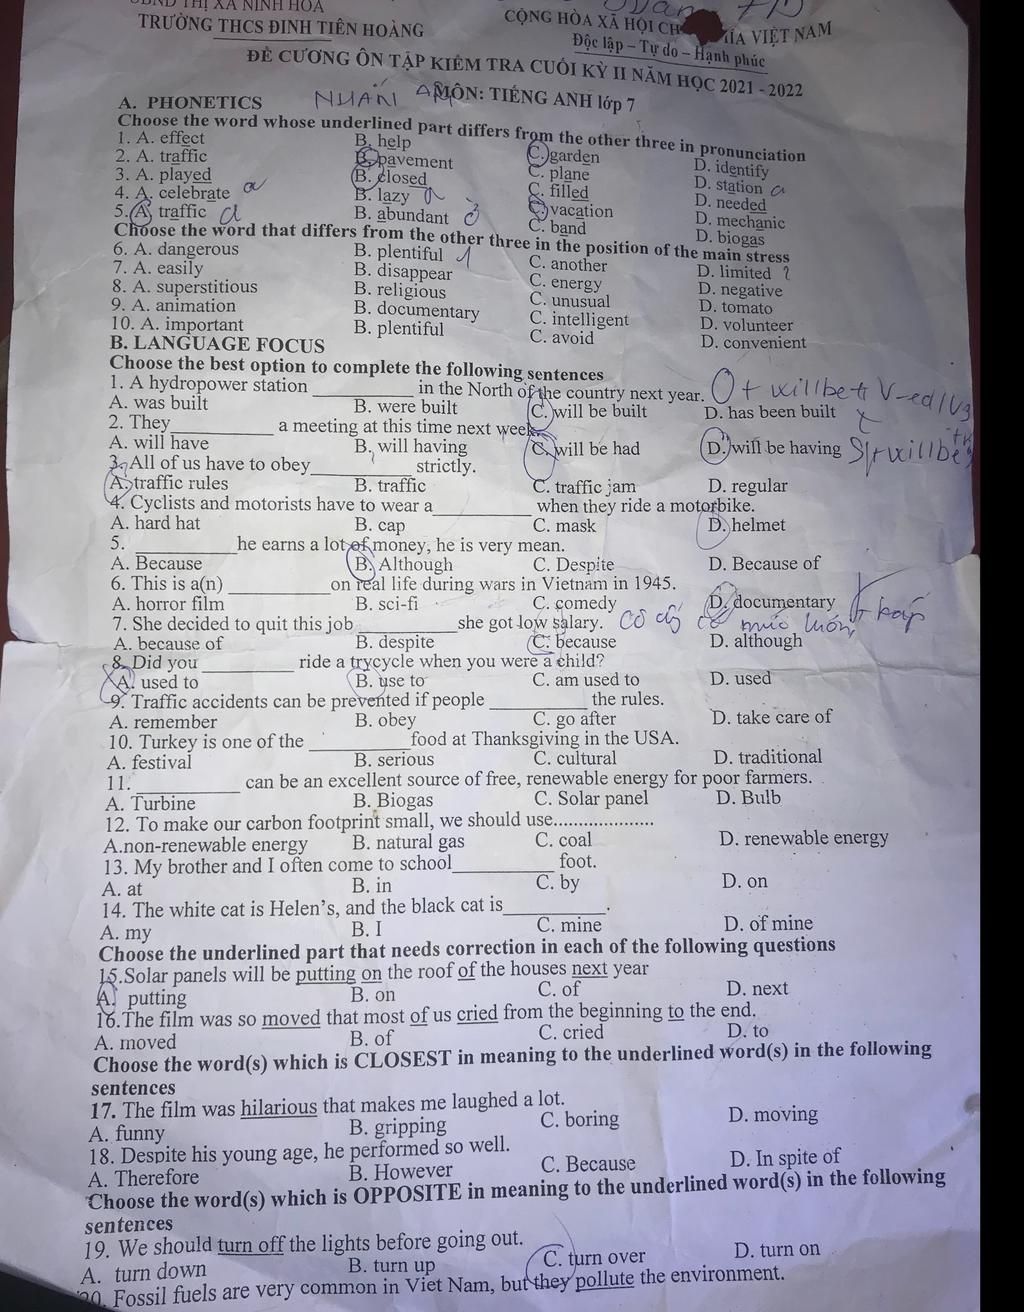 THỊ XÃ NINH HÒA
TRƯỜNG THCS ĐINH TIÊN HOÀNG
CỘNG HÒA XÃ HỘI CH ĨA VIỆT NAM
Độc lập – Tự do – Hạnh phúc
ĐỀ CƯƠNG ÔN TẬP KIỂM TRA CUỐI KỲ II NĂM HỌC 2021 - 2022
MÔN: TIẾNG ANH lớp 7
A. PHONETICS
Choose the word whose underlined part differs from the other three in pronunciation
1. A. effect B. help C. garden D. identify
2. A. traffic B. pavement C. plane D. station
3. A. played B. closed C. filled D. needed
4. A. celebrate B. lazy C. vacation D. mechanic
5. A. traffic B. abundant C. band D. biogas
Choose the word that differs from the other three in the position of the main stress
6. A. dangerous B. plentiful C. another D. limited
7. A. easily B. disappear C. energy D. negative
8. A. superstitious B. religious C. unusual D. tomato
9. A. animation B. documentary C. intelligent D. volunteer
10. A. important B. plentiful C. avoid D. convenient
B. LANGUAGE FOCUS
Choose the best option to complete the following sentences
1. A hydropower station __________ in the North of the country next year.
A. was built B. were built C. will be built D. has been built
2. They __________ a meeting at this time next week.
A. will have B. will having C. will be had D. will be having
3. All of us have to obey __________ strictly.
A. traffic rules B. traffic C. traffic jam D. regular
4. Cyclists and motorists have to wear a __________ when they ride a motorbike.
A. hard hat B. cap C. mask D. helmet
5. __________ he earns a lot of money, he is very mean.
A. Because B. Although C. Despite D. Because of
6. This is a(n) __________ on real life during wars in Vietnam in 1945.
A. horror film B. sci-fi C. comedy D. documentary
7. She decided to quit this job __________ she got low salary.
A. because of B. despite C. because D. although
8. Did you __________ ride a trycycle when you were a child?
A. used to B. use to C. am used to D. used
9. Traffic accidents can be prevented if people __________ the rules.
A. remember B. obey C. go after D. take care of
10. Turkey is one of the __________ food at Thanksgiving in the USA.
A. festival B. serious C. cultural D. traditional
11. __________ can be an excellent source of free, renewable energy for poor farmers.
A. Turbine B. Biogas C. Solar panel D. Bulb
12. To make our carbon footprint small, we should use....................
A.non-renewable energy B. natural gas C. coal D. renewable energy
13. My brother and I often come to school __________ foot.
A. at B. in C. by D. on
14. The white cat is Helen's, and the black cat is __________.
A. my B. I C. mine D. of mine
Choose the underlined part that needs correction in each of the following questions
15.Solar panels will be putting on the roof of the houses next year
A. putting B. on C. of D. next
16.The film was so moved that most of us cried from the beginning to the end.
A. moved B. of C. cried D. to
Choose the word(s) which is CLOSEST in meaning to the underlined word(s) in the following
sentences
17. The film was hilarious that makes me laughed a lot.
A. funny B. gripping C. boring D. moving
18. Despite his young age, he performed so well.
A. Therefore B. However C. Because D. In spite of
Choose the word(s) which is OPPOSITE in meaning to the underlined word(s) in the following
sentences
19. We should turn off the lights before going out.
A. turn down B. turn up C. turn over D. turn on
20. Fossil fuels are very common in Viet Nam, but they pollute the environment.